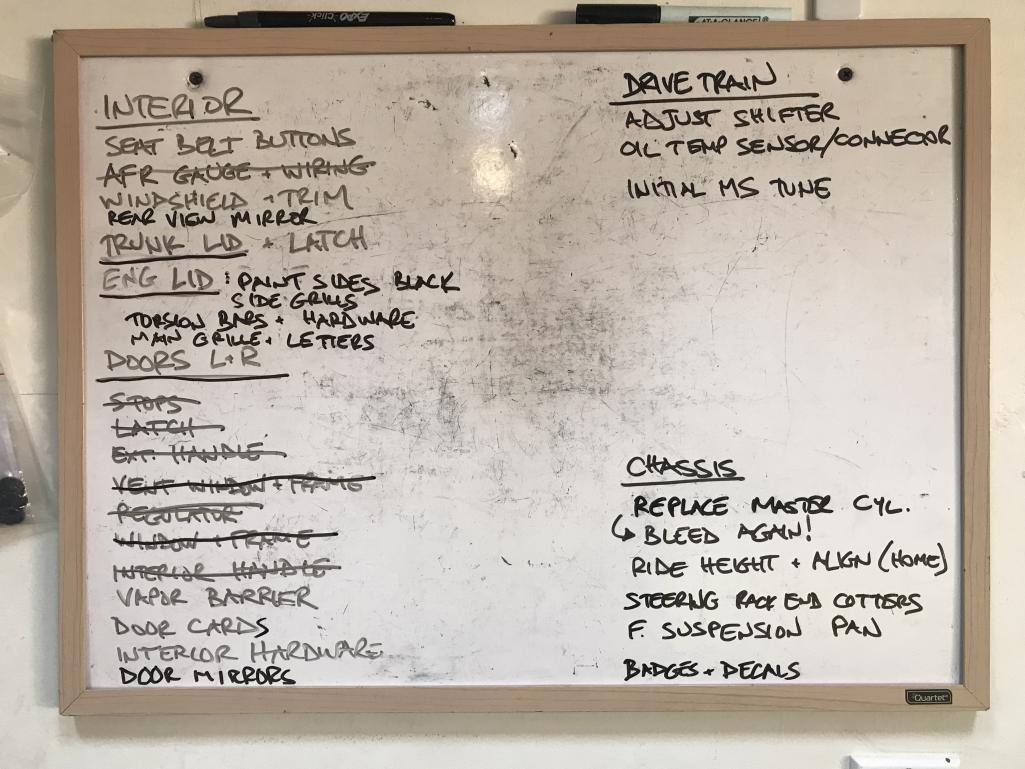 EXPO Click
AT-A-GLANCE®
INTERIOR
SEAT BELT BUTTONS
AFR GAUGE + WIRING
WINDSHIELD + TRIM
REAR VIEW MIRROR
TRUNK LID + LATCH
ENG LID : PAINT SIDES BLACK
SIDE GRILLS
TORSION BARS + HARDWARE
MAIN GRILLE + LETTERS
DOORS L+R
STOPS
LATCH
EXT. HANDLE
VENT WINDOW + FRAME
REGULATOR
WINDOW + FRAME
INTERIOR HANDLE
VAPOR BARRIER
DOOR CARDS
INTERIOR HARDWARE
DOOR MIRRORS
DRIVETRAIN
ADJUST SHIFTER
OIL TEMP SENSOR/CONNECTOR
INITIAL MS TUNE
CHASSIS
REPLACE MASTER CYL.
↳ BLEED AGAIN!
RIDE HEIGHT + ALIGN (HOME)
STEERING RACK END COTTERS
F. SUSPENSION PAN
BADGES + DECALS
Quartet